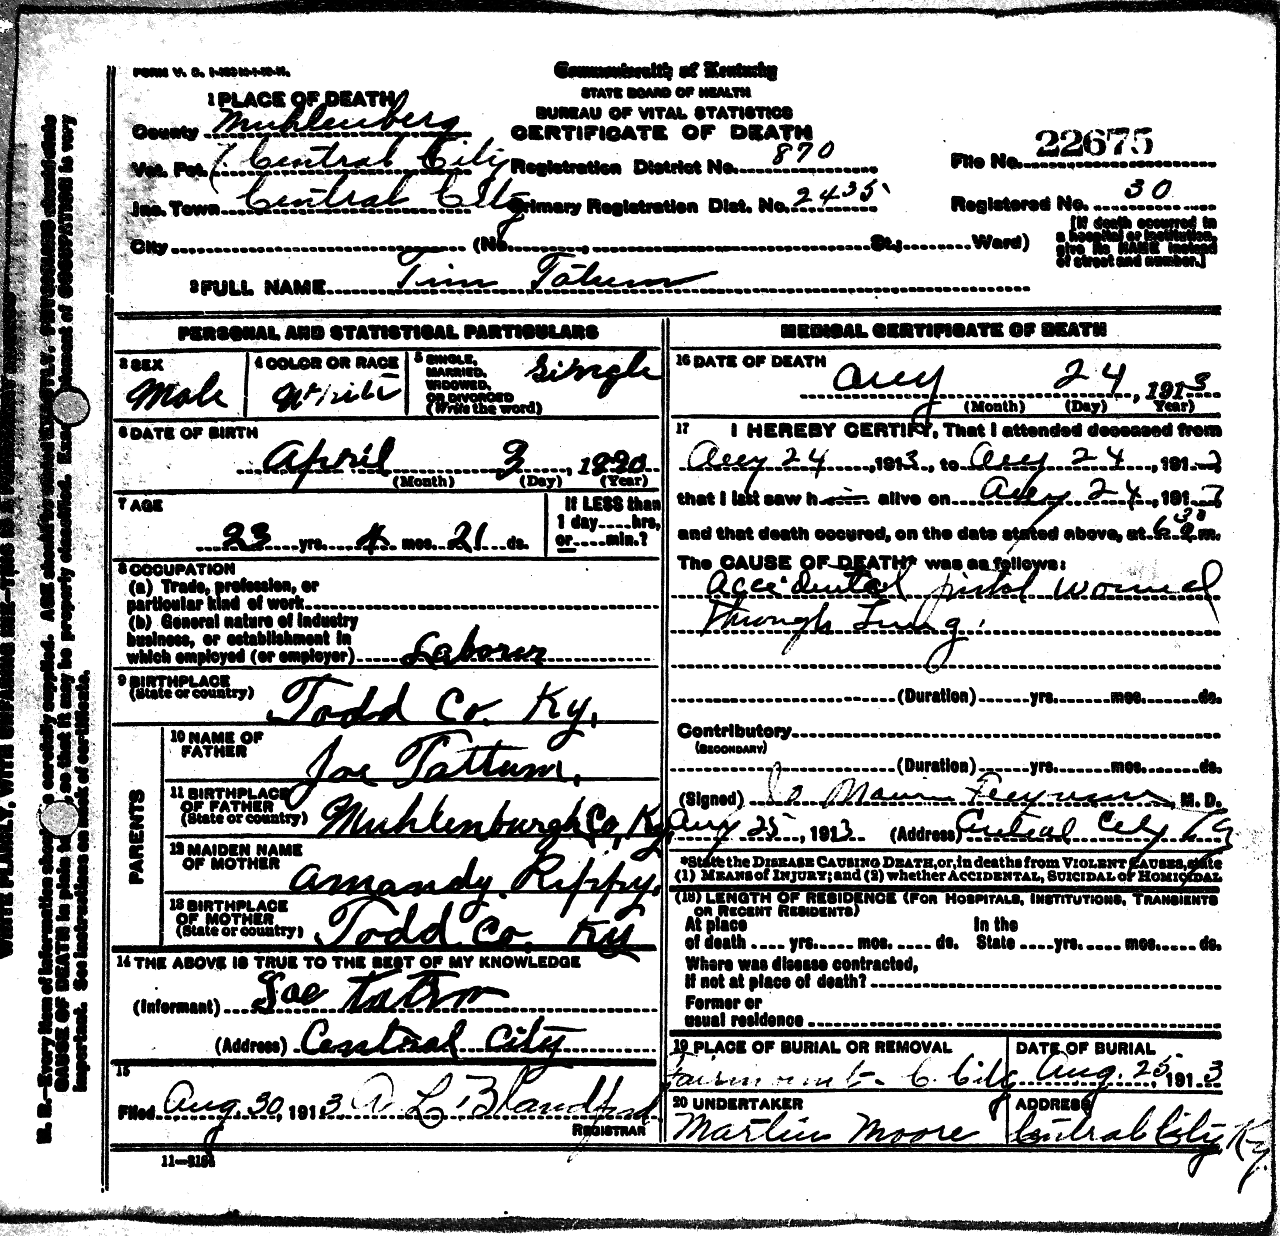 FORM V. S.
Commonwealth of Kentucky
STATE BOARD OF HEALTH
BUREAU OF VITAL STATISTICS
CERTIFICATE OF DEATH
1 PLACE OF DEATH
County Muhlenberg
Vot. Pct. Central City Registration District No. 870
File No. 22675
Inc. Town Central City Primary Registration Dist. No. 2435
Registered No. 30
City (No. , St.; Ward)
[If death occurred in a hospital or institution, give its NAME instead of street and number.]
2 FULL NAME Tim Tatum
PERSONAL AND STATISTICAL PARTICULARS
3 SEX Male
4 COLOR OR RACE White
5 SINGLE, MARRIED, WIDOWED, OR DIVORCED (Write the word) Single
6 DATE OF BIRTH
April 3, 1890
(Month) (Day) (Year)
7 AGE
23 yrs. 4 mos. 21 ds.
If LESS than 1 day....hrs, or....min.?
8 OCCUPATION
(a) Trade, profession, or
particular kind of work
(b) General nature of industry
business, or establishment in
which employed (or employer) Laborer
9 BIRTHPLACE
(State or country) Todd Co. Ky.
PARENTS
10 NAME OF FATHER Joe Tattum.
11 BIRTHPLACE OF FATHER (State or country) Muhlenburgh Co, Ky
12 MAIDEN NAME OF MOTHER Amandy Rippy.
13 BIRTHPLACE OF MOTHER (State or country) Todd Co. Ky
14 THE ABOVE IS TRUE TO THE BEST OF MY KNOWLEDGE
(Informant) Joe
(Address) Central City
15
Filed Aug. 30, 1913 A L Blandford
REGISTRAR
11—3184
MEDICAL CERTIFICATE OF DEATH
16 DATE OF DEATH
Aug 24, 1913
(Month) (Day) (Year)
17 I HEREBY CERTIFY, That I attended deceased from
Aug 24, 1913, to Aug 24, 191
that I last saw him alive on Aug 24, 191
and that death occured, on the date stated above, at 6 30 m.
The CAUSE OF DEATH* was as follows:
Accidental pistol wound
through Lung.
(Duration) yrs. mos. ds.
Contributory
(SECONDARY)
(Duration) yrs. mos. ds.
(Signed) M. D.
Aug 25, 1913 (Address) Central City Ky
*State the DISEASE CAUSING DEATH, or, in deaths from VIOLENT CAUSES, state
(1) MEANS of INJURY; and (2) whether ACCIDENTAL, SUICIDAL or HOMICIDAL
(18) LENGTH OF RESIDENCE (FOR HOSPITALS, INSTITUTIONS, TRANSIENTS
OR RECENT RESIDENTS)
At place In the
of death .... yrs. .... mos. .... ds. State ....yrs. .... mos. .... ds.
Where was disease contracted,
if not at place of death?
Former or
usual residence
19 PLACE OF BURIAL OR REMOVAL DATE OF BURIAL
Fairmount - C. City Aug. 25, 1913
20 UNDERTAKER ADDRESS
Martin Moore Central City Ky.
WRITE PLAINLY, WITH UNFADING INK—THIS IS A PERMANENT
N. B.—Every item of information should be carefully supplied. AGE should be stated EXACTLY. PHYSICIANS should state
CAUSE OF DEATH in plain terms, so that it may be properly classified. Exact statement of OCCUPATION is very
important. See instructions on back of certificate.